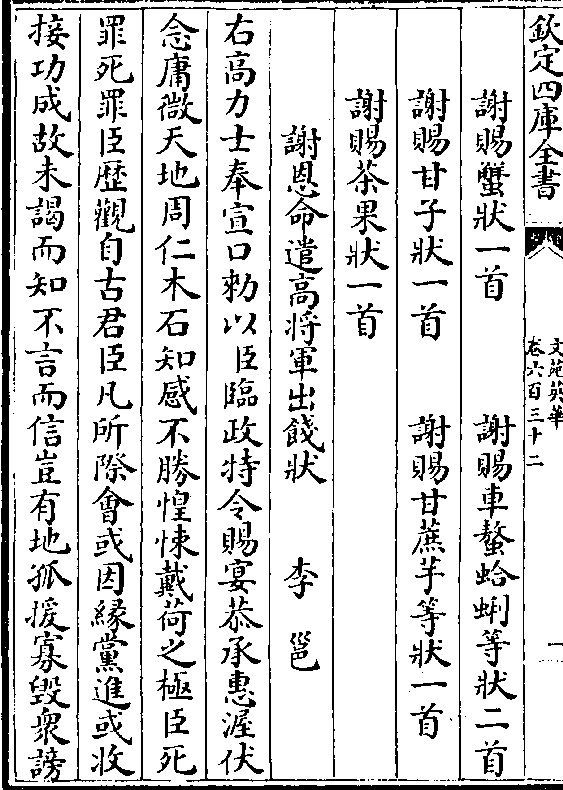 欽定四庫全書
文苑英華
卷六百三十二
一
謝賜蟹狀一首 謝賜車螯蛤蜊等狀二首
謝賜甘子狀一首 謝賜甘蔗芋等狀一首
謝賜茶果狀一首
謝恩命遣高將軍出餞狀 李邕
右高力士奉宣口勑以臣臨政特令賜宴恭承惠渥伏
念庸微天地周仁木石知感不勝惶悚戴荷之極臣死
罪死罪臣歴觀自古君臣凡所際會或因緣黨進或收
接功成故未謁而知不言而信豈有地孤援寡毀衆謗